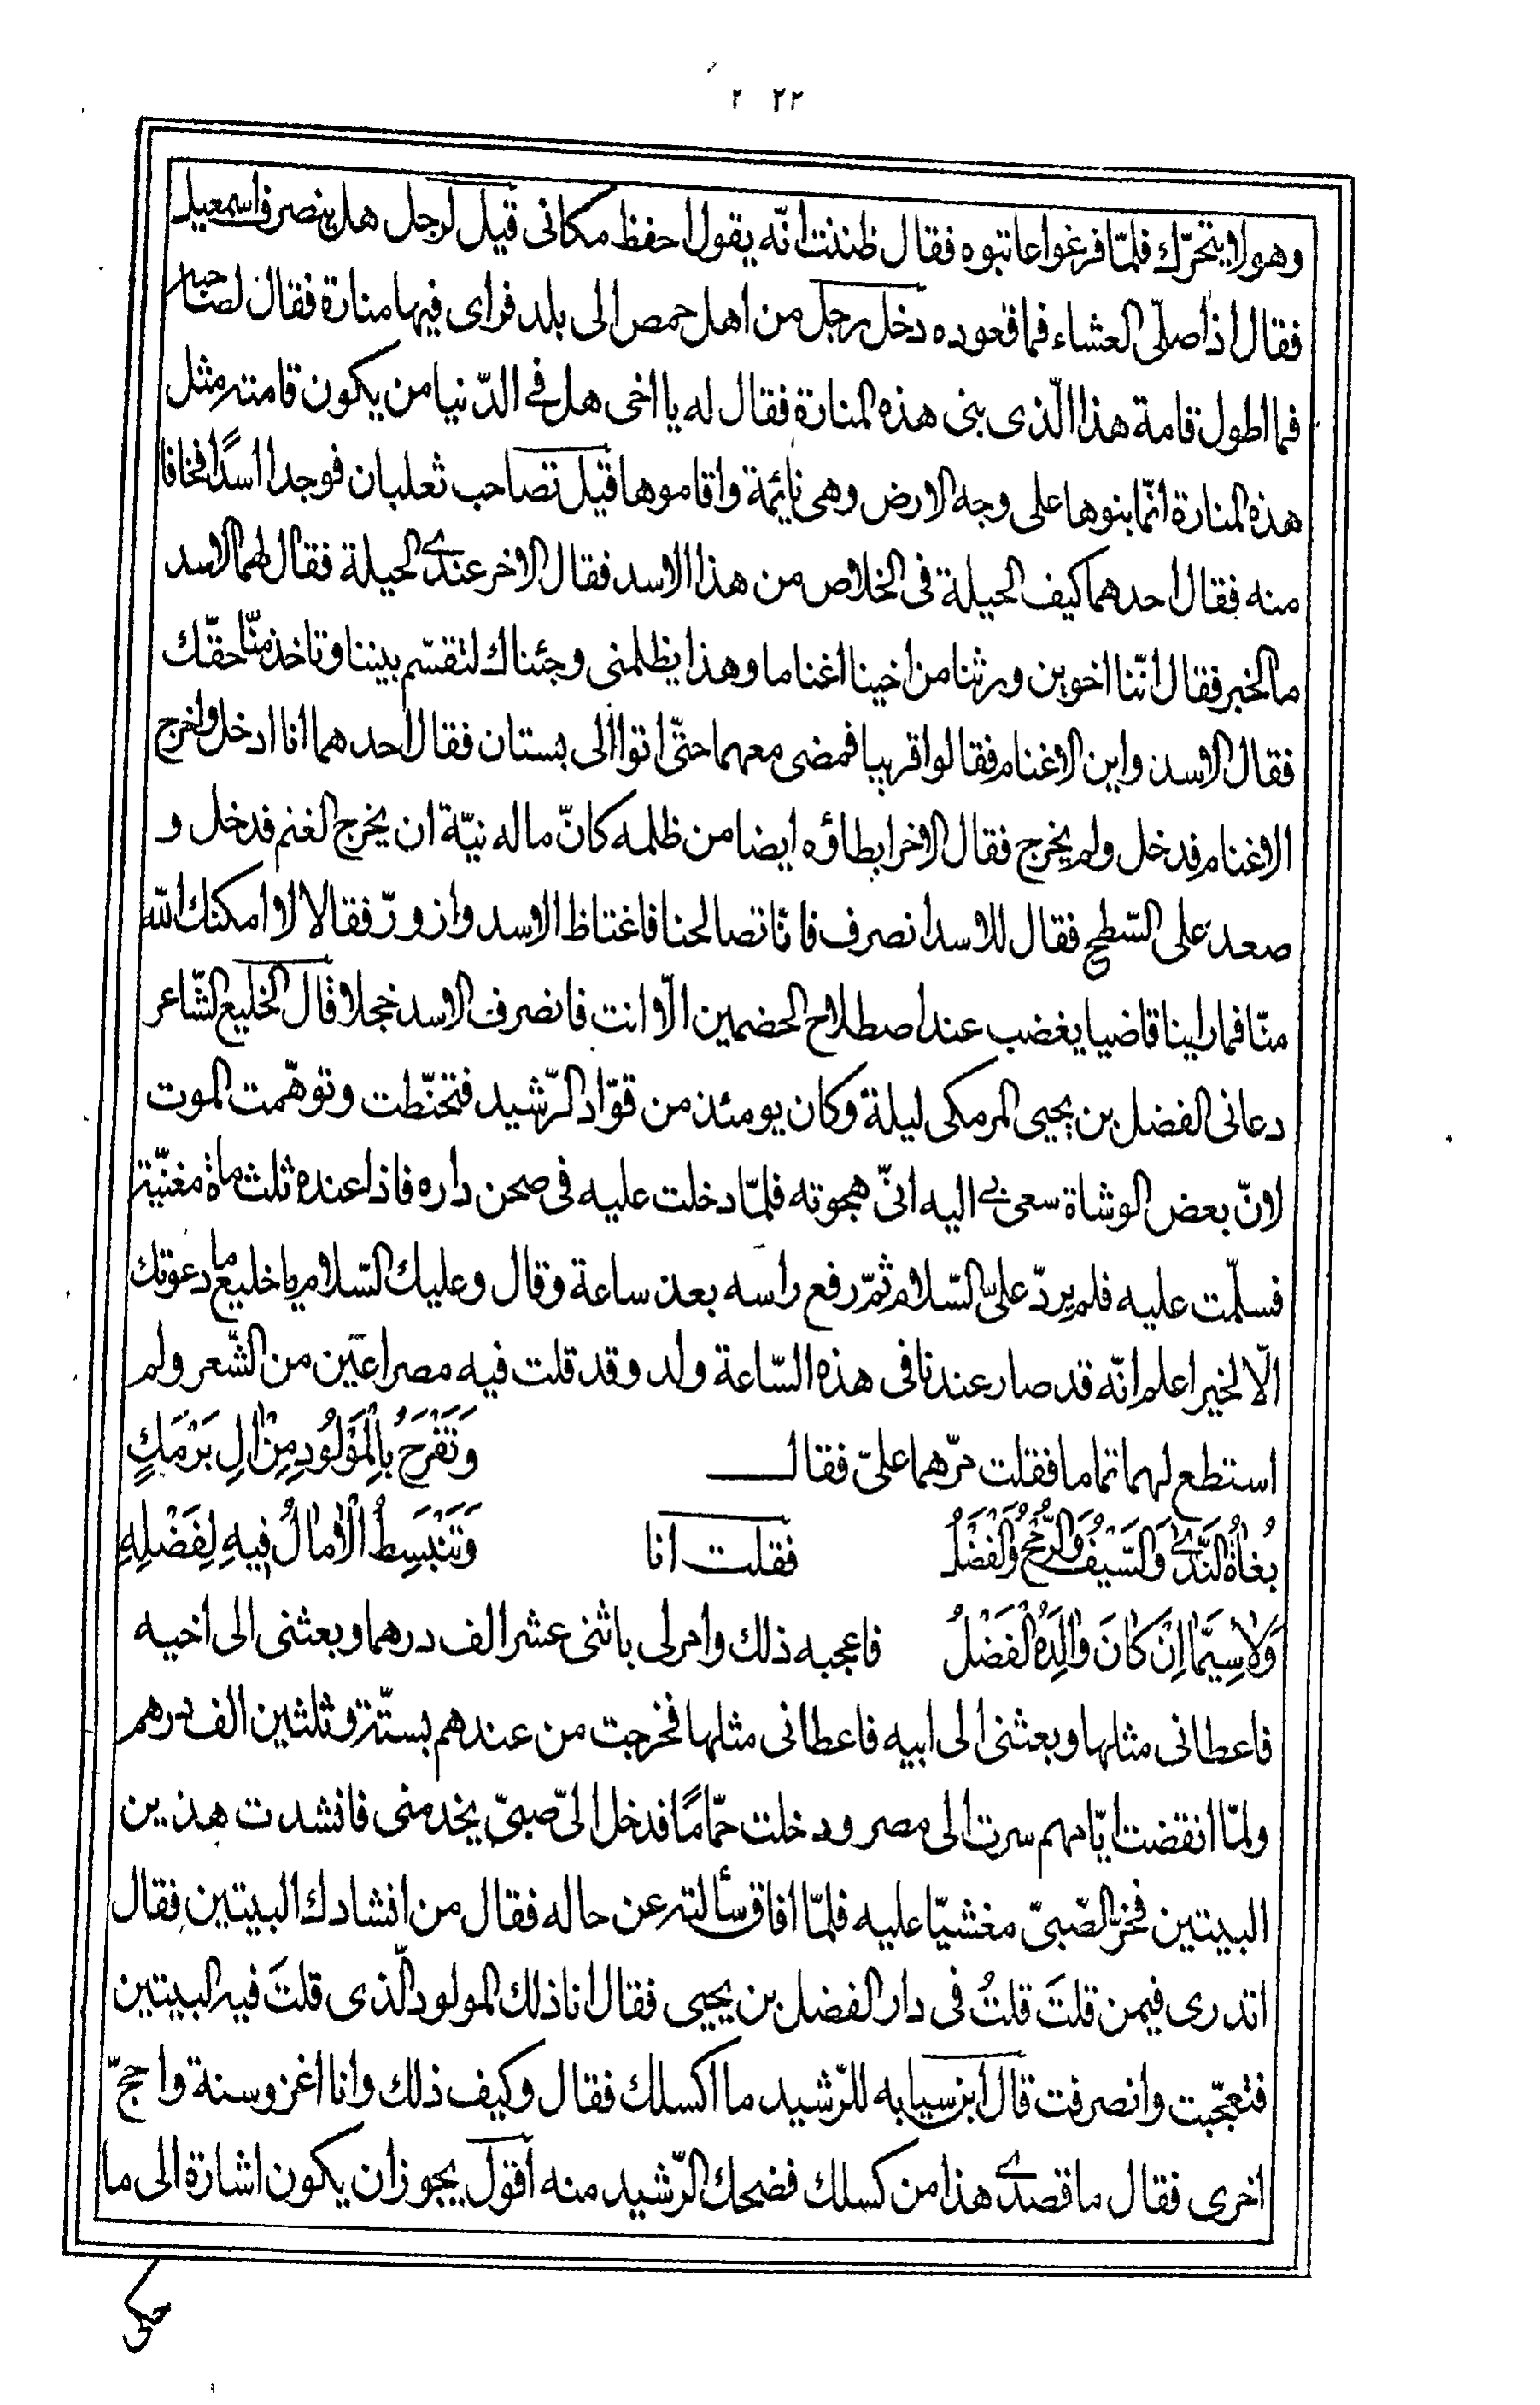 ٢٢ ٢
وهو لا يتحرّك فلمّا فرغوا عاتبوه فقال ظننت انّه يقول احفظ مكانى قيل لرجل هل ينصرف اسمعيل
فقال اذا صلّى العشاء فما قعوده دخل رجل من اهل حمص الى بلد فراى فيها منارة فقال لصاحبه
فما اطول قامة هذا الّذى بنى هذه المنارة فقال له يا اخى هل فى الدّنيا من يكون قامته مثل
هذه المنارة انّما بنوها على وجه الارض وهى نائمة واقاموها قيل تصاحب ثعلبان فوجدا اسدًا فخافا
منه فقال احدهما كيف الحيلة فى الخلاص من هذا الاسد فقال الاخر عندى الحيلة فقال لهما الاسد
ما الخبر فقال انّنا اخوين ورثنا من اخينا اغناما وهذا يظلمنى وجئناك لتقسّم بيننا وتاخذ منّا حقّك
فقال الاسد واين الاغنام فقالوا قريبا فمضى معهما حتّى اتوا الى بستان فقال احدهما انا ادخل واخرج
الاغنام فدخل ولم يخرج فقال الاخر ابطاؤه ايضا من ظلمه كانّ ما له نيّة ان يخرج الغنم فدخل و
صعد على السّطح فقال للاسد انصرف فانّا تصالحنا فاغتاظ الاسد وازورّ فقالا لا امكنك اللّه
منّا فما راينا قاضيا يغضب عند اصطلاح الخصمين الّا انت فانصرف الاسد خجلا قال الخليع الشّاعر
دعانى الفضل بن يحيى البرمكى ليلة وكان يومئذ من قوّاد الرّشيد فتحنّطت وتوهّمت الموت
لانّ بعض الوشاة سعى بى اليه انّى هجوته فلمّا دخلت عليه فى صحن داره فاذا عنده ثلث ماة مغنّية
فسلّمت عليه فلم يردّ علىّ السّلام ثمّ رفع راسه بعد ساعة وقال وعليك السّلام يا خليع ما دعوتك
الّا لخير اعلم انّه قد صار عندنا فى هذه السّاعة ولد وقد قلت فيه مصراعين من الشّعر ولم
استطع لهما تماما فقلت مرّهما علىّ فقال وَتَفْرَحُ بِالْمَوْلُودِ مِنْ الِ بَرْمَكٍ
بُغَاةُ النَّدَى وَالسَّيْفُ وَالرُّمْحُ وَالْفَضْلُ فقلت انا وَتَنْبَسِطُ الْامَالُ فِيهِ لِفَضْلِهِ
وَلَاسِيَّمَا اِنْ كَانَ وَالِدُهُ الْفَضْلُ فاعجبه ذلك وامر لى باثنى عشر الف درهم وبعثنى الى اخيه
فاعطانى مثلها وبعثنى الى ابيه فاعطانى مثلها فخرجت من عندهم بستّة وثلثين الف درهم
ولمّا انقضت ايّامهم سرت الى مصر ودخلت حمّامًا فدخل الىّ صبىّ يخدمنى فانشدت هذين
البيتين فخرّ الصّبىّ مغشيّا عليه فلمّا افاق سألته عن حاله فقال من انشادك البيتين فقال
اتدرى فيمن قلتَ قلتُ فى دار الفضل بن يحيى فقال انا ذلك المولود الّذى قلتَ فيه البيتين
فتعجّبت وانصرفت قال ابن سيابه للرّشيد ما اكسلك فقال وكيف ذلك وانا اغزو سنة واحجّ
اخرى فقال ما قصدى هذا من كسلك فضحك الرّشيد منه اقول يجوز ان يكون اشارة الى ما
حكى